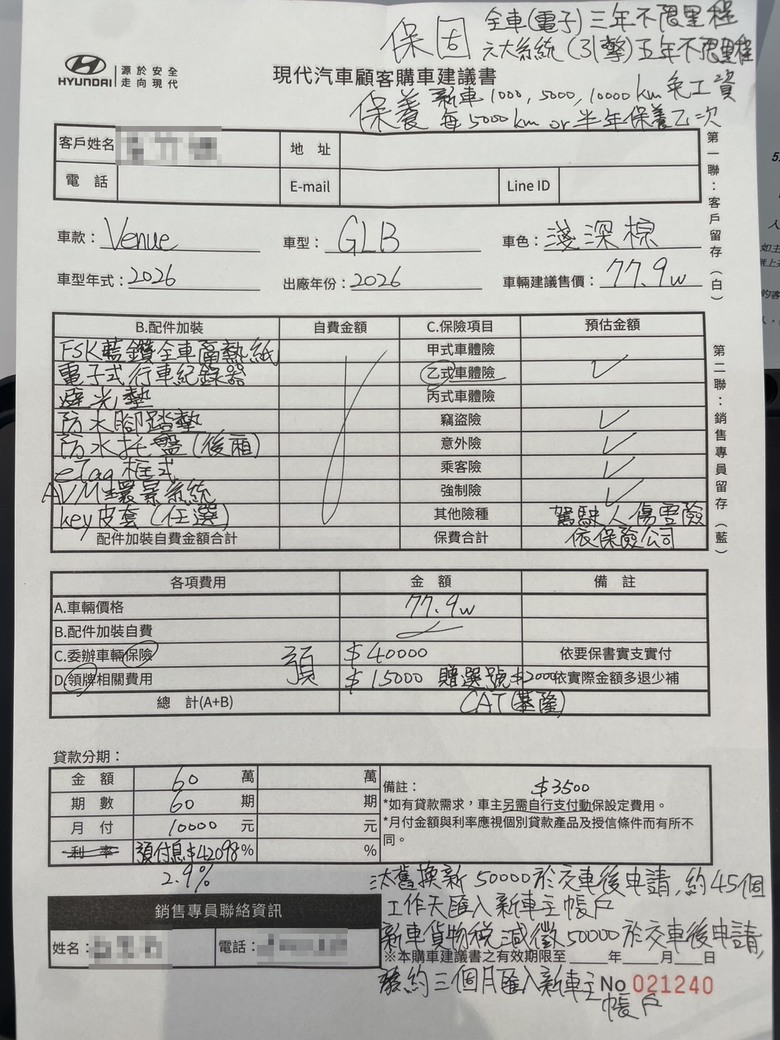 保固 全車(電子)三年不限里程
六大系統(引擎)五年不限里程
HYUNDAI 源於安全 走向現代
現代汽車顧客購車建議書
保養 新車1000, 5000, 10000 km 免工資
每5000km or 半年保養乙次
客戶姓名 地址
電話 E-mail Line ID
第一聯:客戶留存(白)
車款: Venue 車型: GLB 車色: 淺深棕
車型年式: 2026 出廠年份: 2026 車輛建議售價: 77.9w
第二聯:銷售專員留存(藍)
B.配件加裝 自費金額 C.保險項目 預估金額
FSK藍鑽全車隔熱紙 甲式車體險
電子式行車紀錄器 乙式車體險 ✓
避光墊 丙式車體險
防水腳踏墊 竊盜險 ✓
防水托盤(後廂) 意外險 ✓
eTag框式 乘客險 ✓
AVM環景系統 強制險 ✓
key皮套(任選) 其他險種 駕駛人傷害險
配件加裝自費金額合計 保費合計 依保險公司
各項費用 金額 備註
A.車輛價格 77.9w
B.配件加裝自費
C.委辦車輛保險 預 $40000 依要保書實支實付
D.領牌相關費用 $15000 贈選號$2000 依實際金額多退少補
總 計(A+B) CAT(基隆)
貸款分期:
金額 60 萬 萬 備註: $3500
期數 60 期 期 *如有貸款需求,車主另需自行支付動保設定費用。
月付 10000 元 元 *月付金額與利率應視個別貸款產品及授信條件而有所不同。
利率 預付息$42098 % %
2.9%
汰舊換新50000於交車後申請,約45個
工作天匯入新車主帳戶
銷售專員聯絡資訊
新車貨物稅減徵50000於交車後申請,
姓名: 電話:
※本購車建議書之有效期限至 年 月 日
約三個月匯入新車主帳戶
No 021240